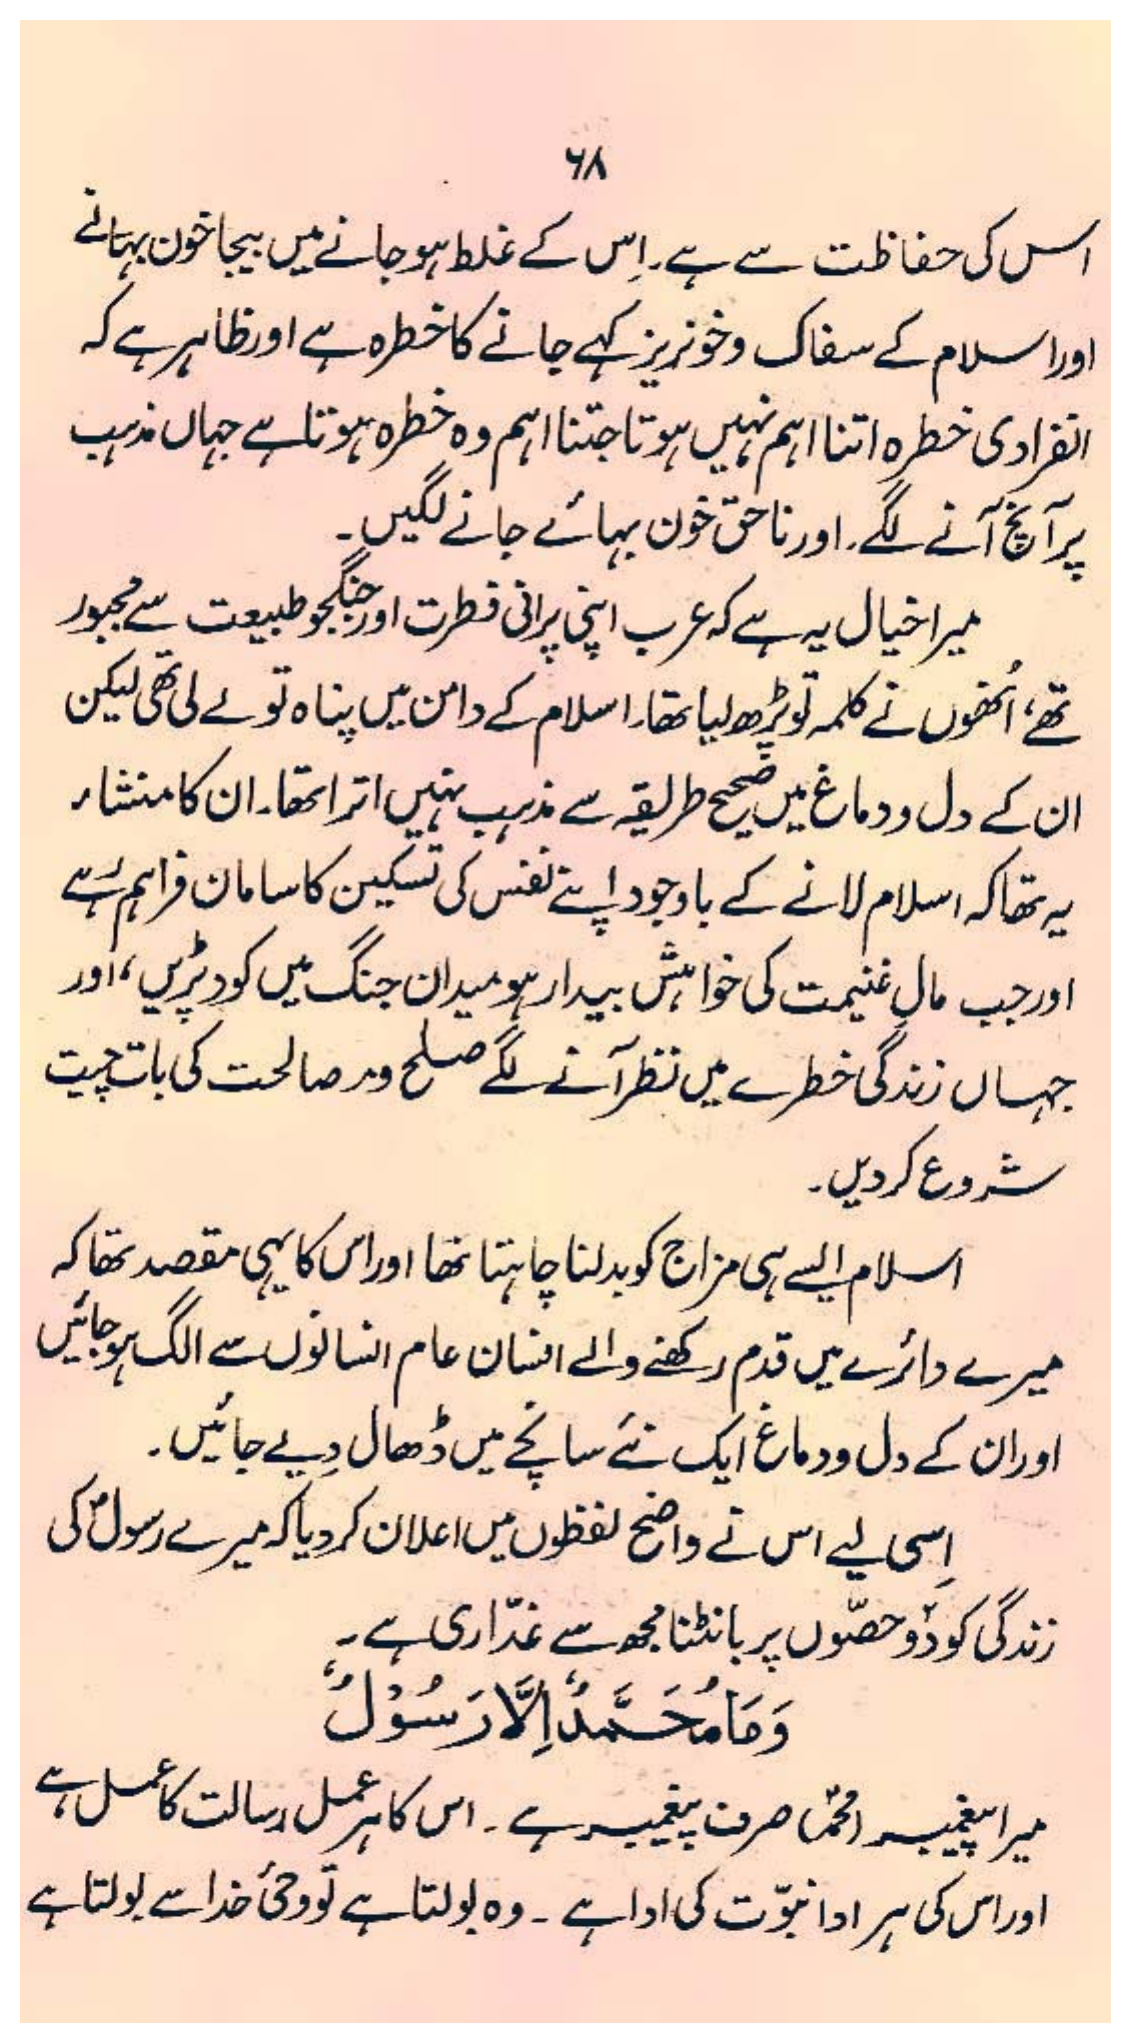 ۶۸
اس کی حفاظت سے ہے۔ اِس کے غلط ہو جانے میں بیجا خون بہانے
اور اسلام کے سفاک و خونریز کہے جانے کا خطرہ ہے اور ظاہر ہے کہ
انفرادی خطرہ اتنا اہم نہیں ہوتا جتنا اہم وہ خطرہ ہوتا ہے جہاں مذہب
پر آنچ آنے لگے۔ اور ناحق خون بہائے جانے لگیں۔
میرا خیال یہ ہے کہ عرب اپنی پرانی فطرت اور جنگجو طبیعت سے مجبور
تھے، اُنھوں نے کلمہ تو پڑھ لیا تھا۔ اسلام کے دامن میں پناہ تو لے لی تھی لیکن
ان کے دل و دماغ میں صحیح طریقہ سے مذہب نہیں اترا تھا۔ ان کا منشاء
یہ تھا کہ اسلام لانے کے باوجود اپنے نفس کی تسکین کا سامان فراہم رہے
اور جب مالِ غنیمت کی خواہش بیدار ہو میدان جنگ میں کود پڑیں، اور
جہاں زندگی خطرے میں نظر آنے لگے صلح و مصالحت کی بات چیت
شروع کر دیں۔
اسلام ایسے ہی مزاج کو بدلنا چاہتا تھا اور اس کا یہی مقصد تھا کہ
میرے دائرے میں قدم رکھنے والے انسان عام انسانوں سے الگ ہو جائیں
اور ان کے دل و دماغ ایک نئے سانچے میں ڈھال دِیے جائیں۔
اِسی لیے اس نے واضح لفظوں میں اعلان کر دیا کہ میرے رسولؐ کی
زندگی کو دو حصّوں پر بانٹنا مجھ سے غدّاری ہے۔
وَمَا مُحَمَّدٌ اِلَّا رَسُوْلٌ
میرا پیغمبر (محمدؐ) صرف پیغمبر ہے۔ اس کا ہر عمل رسالت کا عمل ہے
اور اس کی ہر ادا نبوّت کی ادا ہے۔ وہ بولتا ہے تو وحیٔ خدا سے بولتا ہے